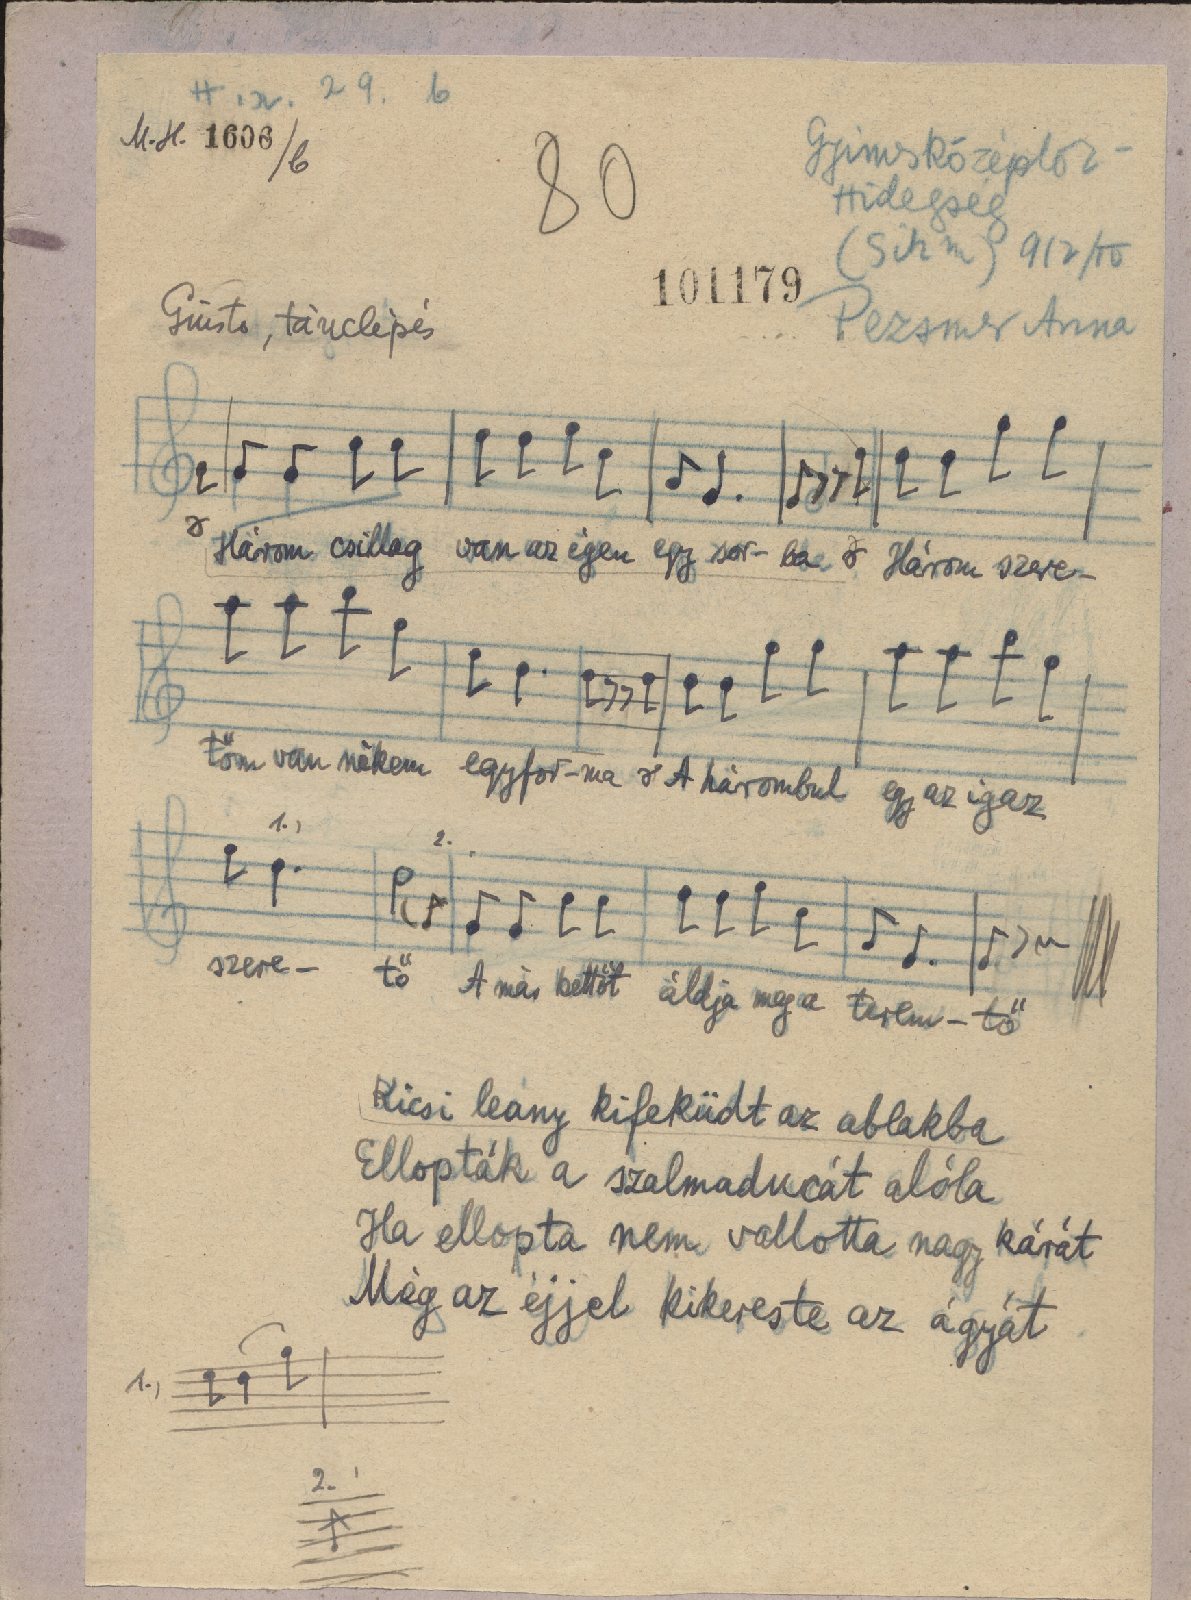 H. . 29. b
M.H. 1606/b
80
Gyimesközéplok-
Hidegség
(Sikm) 912/
101179
Pezsmer Anna
Giusto, tánclépés
ə Három csillag van az égen egy sor-ba ə Három szere-
tőm van nékem egyfor-ma ə A hárombul egy az igaz
1.,
2.
szere-tő A más kettőt áldja meg a terem-tő
Kicsi leány kifeküdt az ablakba
Ellopták a szalmaducát alóla
Ha ellopta nem vallotta nagy kárát
Még az éjjel kikereste az ágyát
1.,
2.